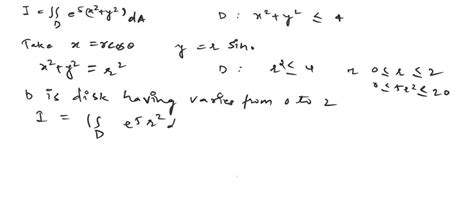 I = ∬_D e^{5(x²+y²)} dA D : x²+y² ≤ 4
Take x = rcosθ y = r sin.
x²+y² = r² D : r² ≤ 4 r 0 ≤ r ≤ 2
0 ≤ 5r² ≤ 20
D is disk having varies from 0 to 2
I = ∬_D e^{5r²} d